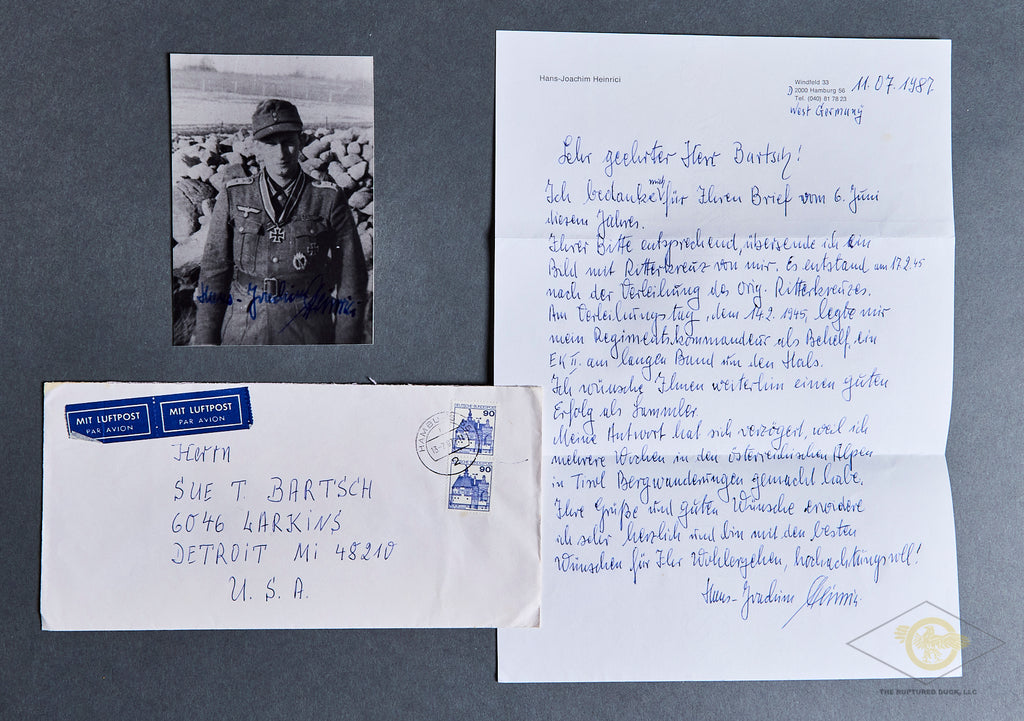 Hans-Joachim Heinrici
Windfeld 33
D 2000 Hamburg 56
Tel. (040) 81 78 23
West Germany
11.07.1987
Sehr geehrter Herr Bartsch!
Ich bedanke mich für Ihren Brief vom 6. Juni
diesen Jahres.
Ihrer Bitte entsprechend, übersende ich ein
Bild mit Ritterkreuz von mir. Es entstand am 17.2.45
nach der Verleihung des Orig. Ritterkreuzes.
Am Verleihungstag, dem 14.2. 1945, legte mir
mein Regimentskommandeur als Behelf, ein
EK II. am langen Band um den Hals.
Ich wünsche Ihnen weiterhin einen guten
Erfolg als Sammler.
Meine Antwort hat sich verzögert, weil ich
mehrere Wochen in den österreichischen Alpen
in Tirol Bergwanderungen gemacht habe.
Ihre Grüße und guten Wünsche erwidere
ich sehr herzlich und bin mit den besten
Wünschen für Ihr Wohlergehen, hochachtungsvoll!
Hans-Joachim Heinrici
Hans-Joachim Heinrici
MIT LUFTPOST
PAR AVION
MIT LUFTPOST
PAR AVION
HAMBURG
DEUTSCHE BUNDESPOST
90
90
Herrn
SUE T. BARTSCH
6046 LARKINS
DETROIT Mi 48210
U.S.A.
THE RUPTURED DUCK, LLC